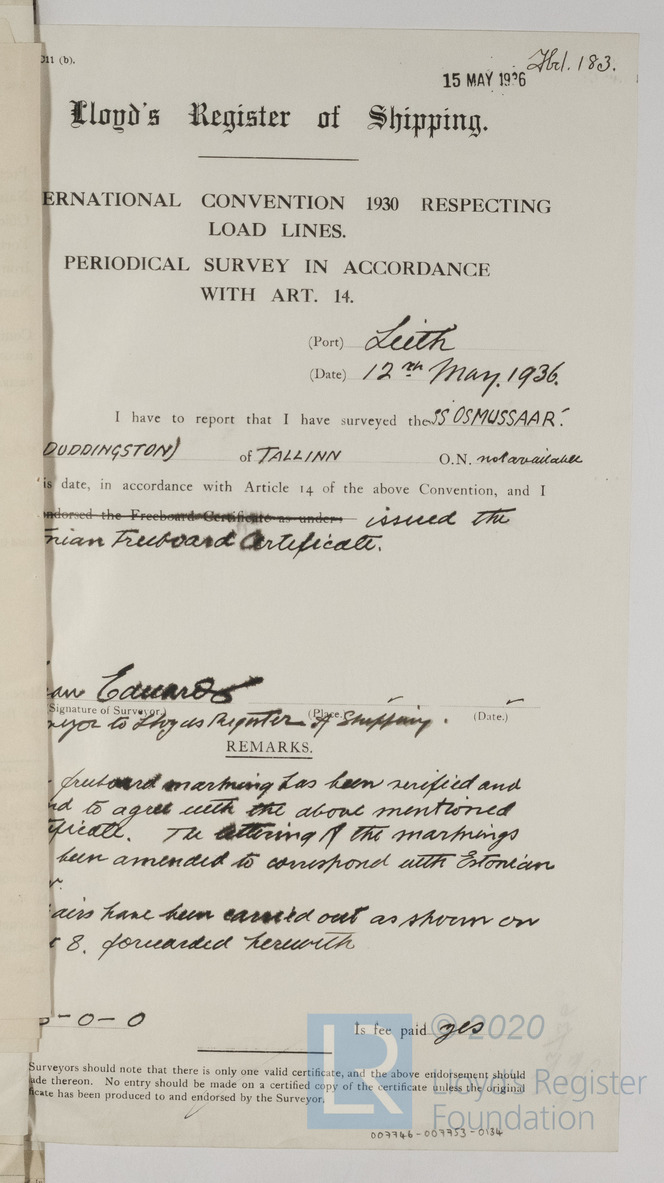 011 (b).
Fbd. 183.
15 MAY 1936
Lloyd's Register of Shipping.
ERNATIONAL CONVENTION 1930 RESPECTING
LOAD LINES.
PERIODICAL SURVEY IN ACCORDANCE
WITH ART. 14.
(Port) Leith
(Date) 12th May. 1936.
I have to report that I have surveyed the SS OSMUSSAAR.
DUDDINGSTON) of TALLINN O.N. not available
is date, in accordance with Article 14 of the above Convention, and I
ndorsed the Freeboard Certificate as under: issued the
nian Freeboard Certificate.
Edwards
(Signature of Surveyor.) (Place.) (Date.)
eyor to Lloyds Register of Shipping.
REMARKS.
freeboard marking has been verified and
nd to agree with the above mentioned
tificate. The lettering of the markings
been amended to correspond with Estonian
airs have been carried out as shown on
t 8. forwarded herewith
-0-0
Is fee paid yes
Surveyors should note that there is only one valid certificate, and the above endorsement should
ade thereon. No entry should be made on a certified copy of the certificate unless the original
ficate has been produced to and endorsed by the Surveyor.
LR
© 2020
Lloyd's Register
Foundation
007746-007753-0134